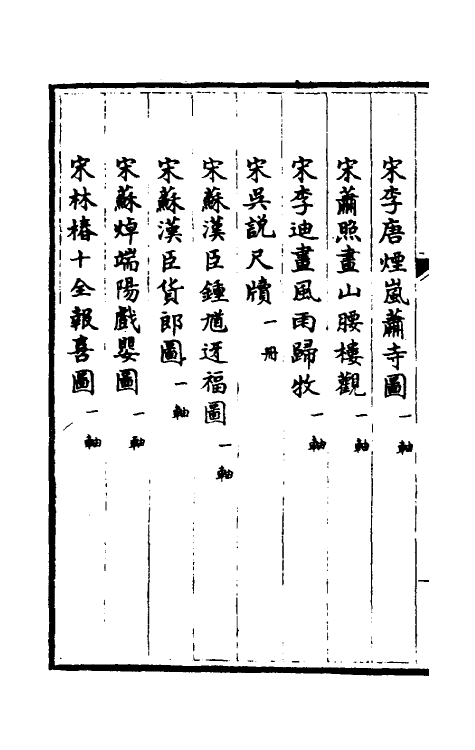 宋李唐煙嵐蕭寺圖一軸
宋蕭照畫山腰樓觀一軸
宋李迪畫風雨歸牧一軸
宋吳說尺牘一冊
宋蘇漢臣鍾馗迓福圖一軸
宋蘇漢臣貨郎圖一軸
宋蘇焯端陽戲嬰圖一軸
宋林椿十全報喜圖一軸